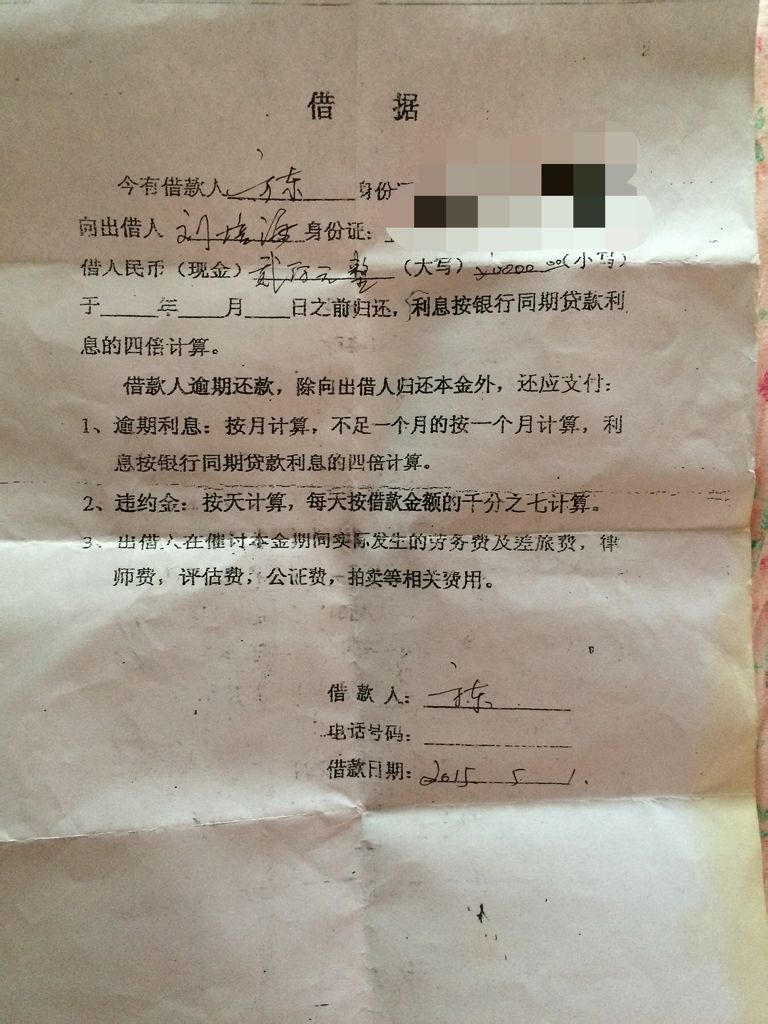 借 据
今有借款人 方东 身份
向出借人 刘培 身份证：
借人民币（现金）贰万元整（大写）20000.00（小写）
于____年____月____日之前归还，利息按银行同期贷款利
息的四倍计算。
借款人逾期还款，除向出借人归还本金外，还应支付：
1、逾期利息：按月计算，不足一个月的按一个月计算，利
息按银行同期贷款利息的四倍计算。
2、违约金：按天计算，每天按借款金额的千分之七计算。
3、出借人在催讨本金期间实际发生的劳务费及差旅费，律
师费，评估费，公证费，拍卖等相关费用。
借 款 人：方东
电话号码：
借款日期：2015 5 1.